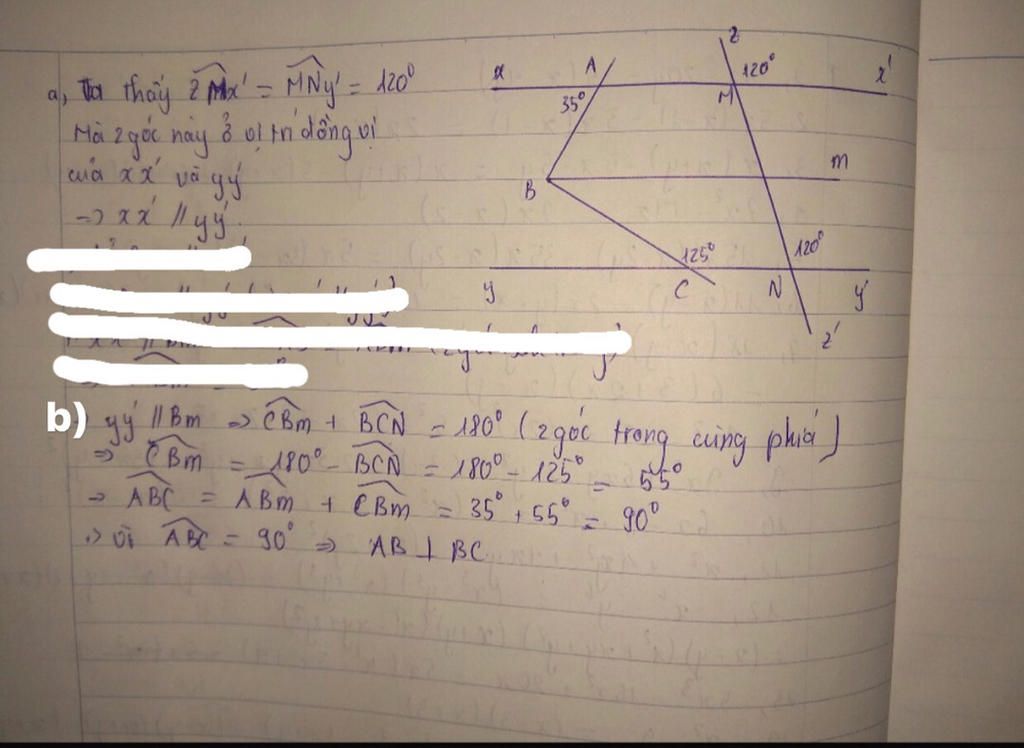 a, Ta thấy zMx' = MNy' = 120°
Mà 2 góc này ở vị trí đồng vị
của xx' và yy'
→ xx' // yy'.
b) yy' // Bm ⇒ CBm + BCN = 180° (2 góc trong cùng phía)
⇒ CBm = 180° - BCN = 180° - 125° = 55°
→ ABC = ABm + CBm = 35° + 55° = 90°
Vì ABC = 90° ⇒ AB ⊥ BC
z
x A 120° x'
35° M
m
B
125° 120°
y C N y'
z'